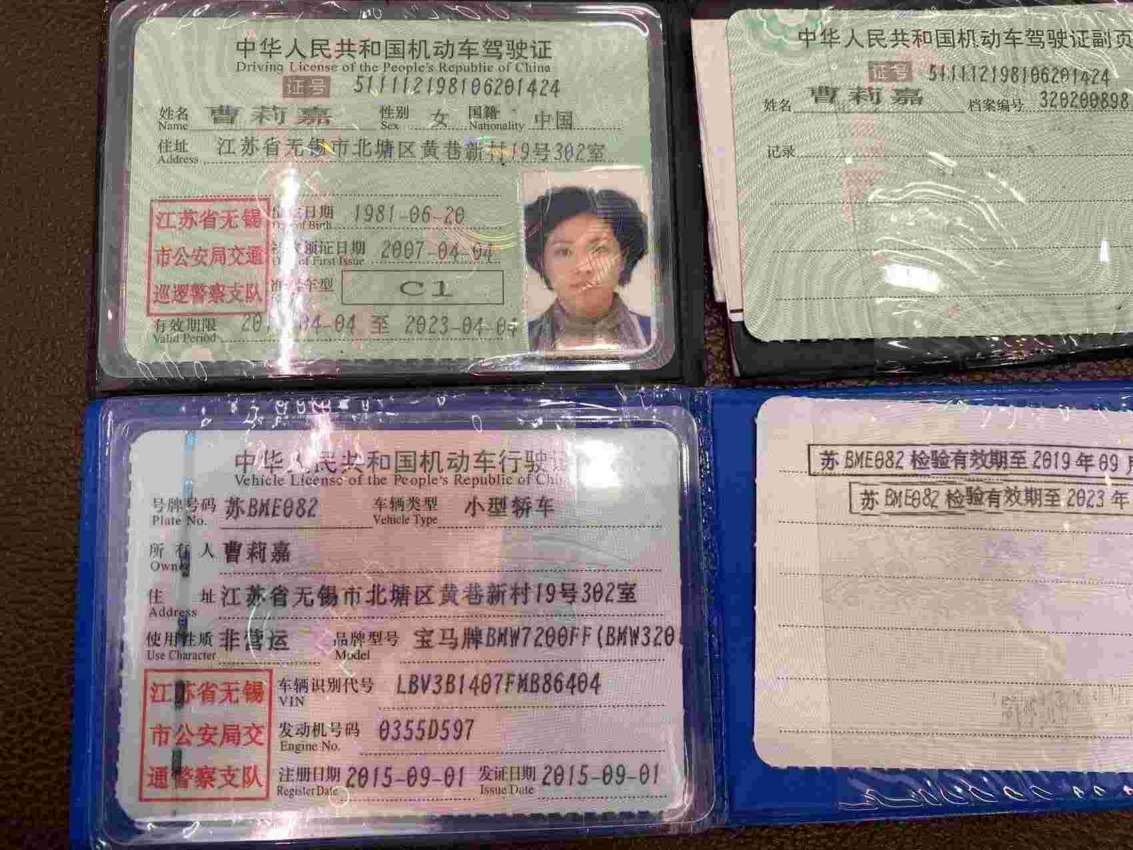 中华人民共和国机动车驾驶证
Driving License of the People's Republic of China
证号 511112198106201424
姓名 曹莉嘉 性别 女 国籍 中国
Name Sex Nationality
住址 江苏省无锡市北塘区黄巷新村19号302室
Address
日期 1981-06-20
of Birth
领证日期 2007-04-04
of First Issue
车型 C1
江苏省无锡
市公安局交通
巡逻警察支队
有效期限 04-04 至 2023-04-04
Valid Period
中华人民共和国机动车驾驶证副页
证号 511112198106201424
姓名 曹莉嘉 档案编号 320200898
记录
中华人民共和国机动车行驶证
Vehicle License of the People's Republic of
号牌号码 苏BME082 车辆类型 小型轿车
Plate No. Vehicle Type
所有人 曹莉嘉
Owner
住址 江苏省无锡市北塘区黄巷新村19号302室
Address
使用性质 非营运 品牌型号 宝马牌BMW7200FF(BMW320
Use Character Model
江苏省无锡
市公安局交
通警察支队
车辆识别代号 LBV3B1407FMB86404
VIN
发动机号码 0355D597
Engine No.
注册日期 2015-09-01 发证日期 2015-09-01
Register Date Issue Date
苏BME082检验有效期至2019年09月
苏BME082检验有效期至2023年